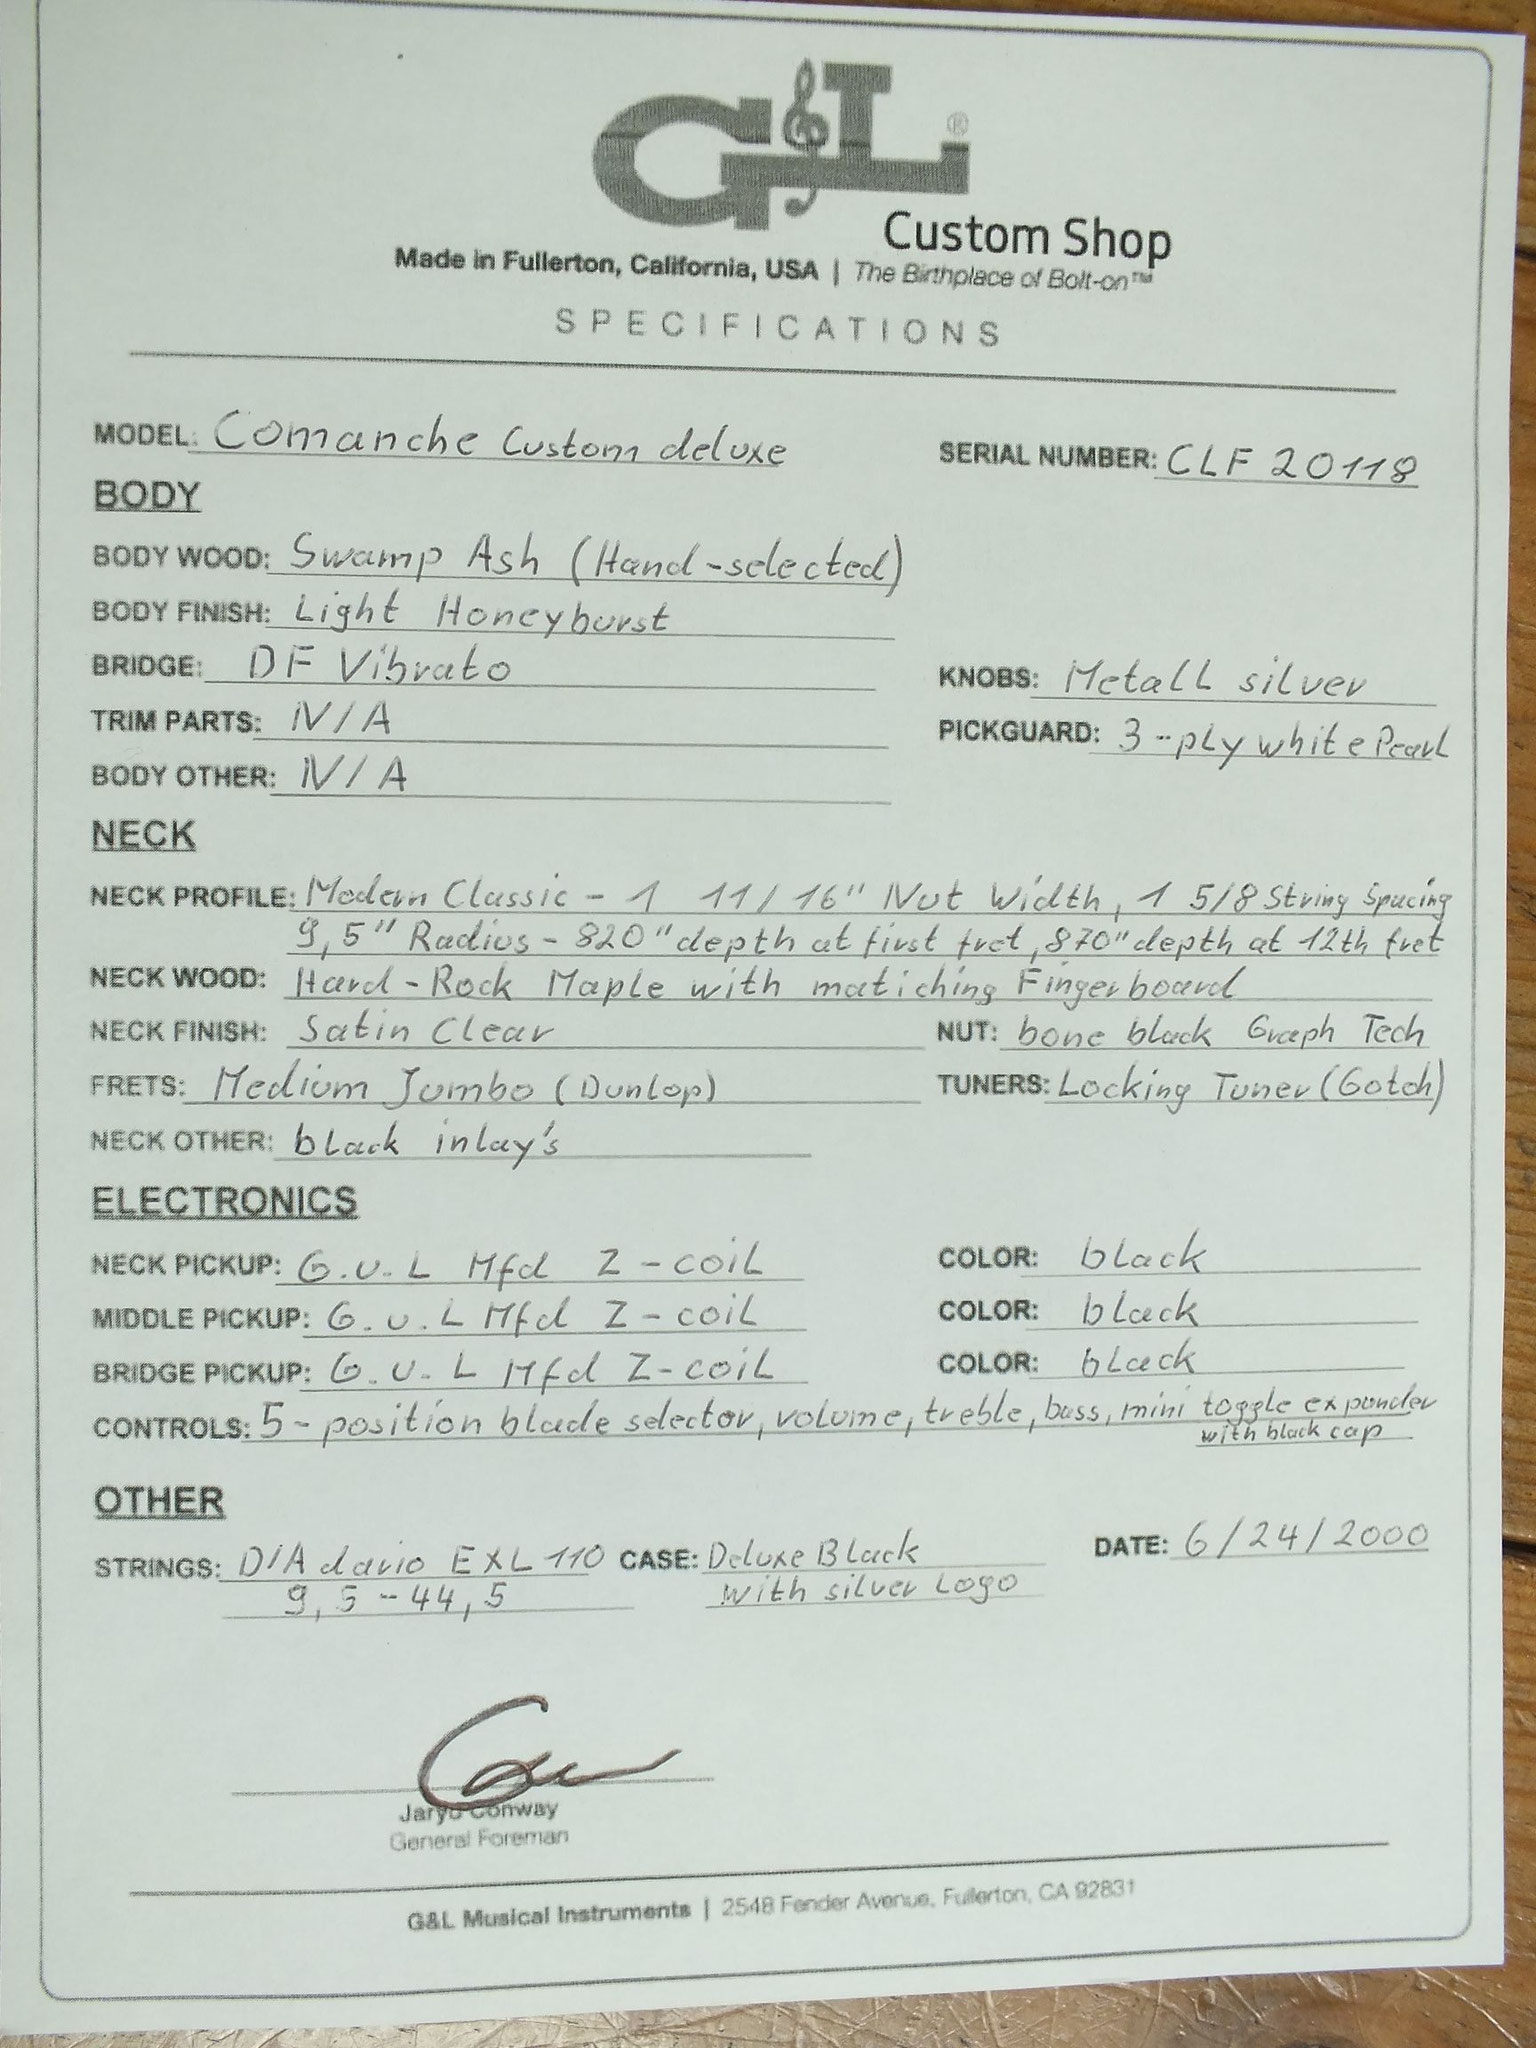 G&L®
Custom Shop
Made in Fullerton, California, USA | The Birthplace of Bolt-on™
SPECIFICATIONS
MODEL: Comanche Custom deluxe SERIAL NUMBER: CLF 20118
BODY
BODY WOOD: Swamp Ash (Hand-selected)
BODY FINISH: Light Honeyburst
BRIDGE: DF Vibrato KNOBS: Metall silver
TRIM PARTS: N/A PICKGUARD: 3-ply white Pearl
BODY OTHER: N/A
NECK
NECK PROFILE: Modern Classic - 1 11/16" Nut Width, 1 5/8 String Spacing
9,5" Radius - 820" depth at first fret, 870" depth at 12th fret
NECK WOOD: Hard-Rock Maple with matiching Fingerboard
NECK FINISH: Satin Clear NUT: bone black Graph Tech
FRETS: Medium Jumbo (Dunlop) TUNERS: Locking Tuner (Gotoh)
NECK OTHER: black inlay's
ELECTRONICS
NECK PICKUP: G.u.L Mfd Z-coil COLOR: black
MIDDLE PICKUP: G.u.L Mfd Z-coil COLOR: black
BRIDGE PICKUP: G.u.L Mfd Z-coil COLOR: black
CONTROLS: 5-position blade selector, volume, treble, bass, mini toggle expander
with black cap
OTHER
STRINGS: D'Adario EXL 110 CASE: Deluxe Black DATE: 6/24/2000
9,5-44,5 with silver Logo
Jaryd Conway
General Foreman
G&L Musical Instruments | 2548 Fender Avenue, Fullerton, CA 92831